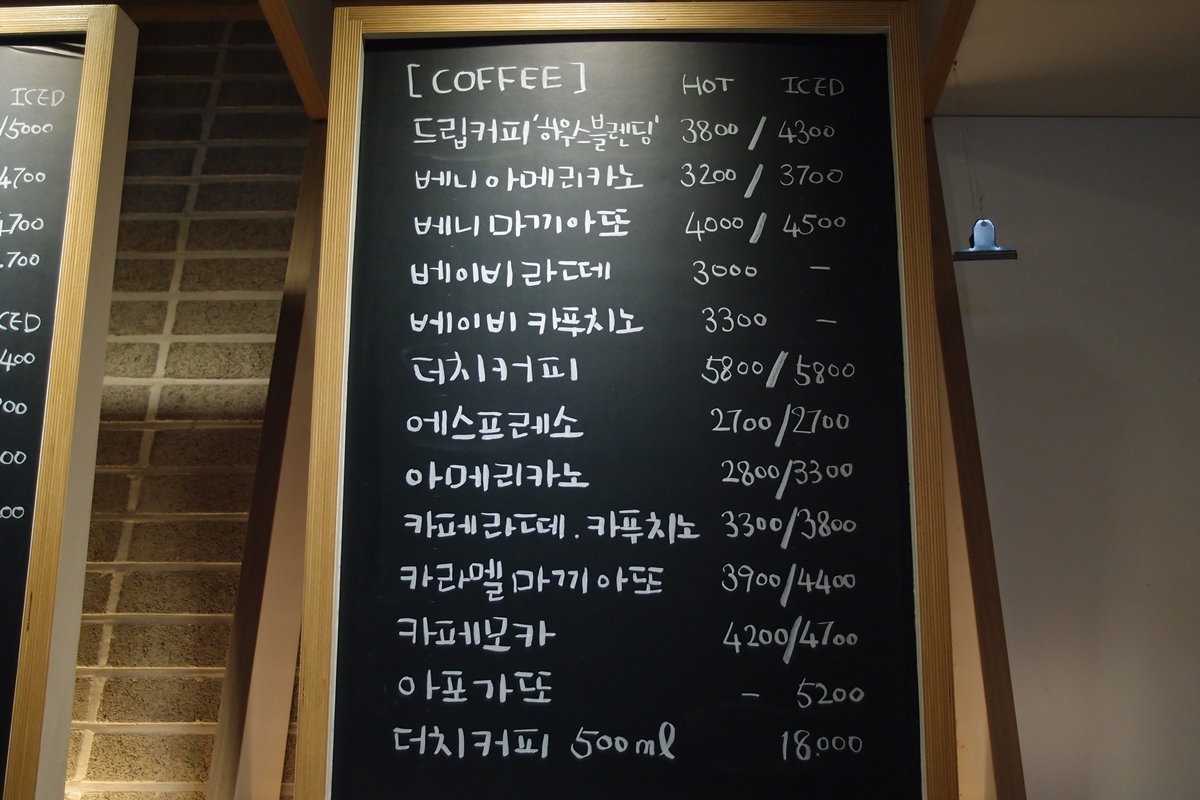 ICED
/5000
4700
4700
.700
CED
400
00
00
00
[COFFEE] HOT ICED
드립커피'하우스블렌딩' 3800 / 4300
베니아메리카노 3200 / 3700
베니 마끼아또 4000 / 4500
베이비라떼 3000 -
베이비 카푸치노 3300 -
더치커피 5800/5800
에스프레소 2700/2700
아메리카노 2800/3300
카페라떼.카푸치노 3300/3800
카라멜 마끼아또 3900/4400
카페모카 4200/4700
아포가또 - 5200
더치커피 500ml 18.000